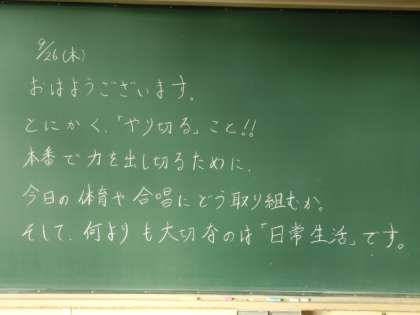 9/26(木)
おはようございます。
とにかく、「やり切る」こと!!
本番で力を出し切るために、
今日の体育や合唱にどう取り組むか。
そして、何よりも大切なのは「日常生活」です。